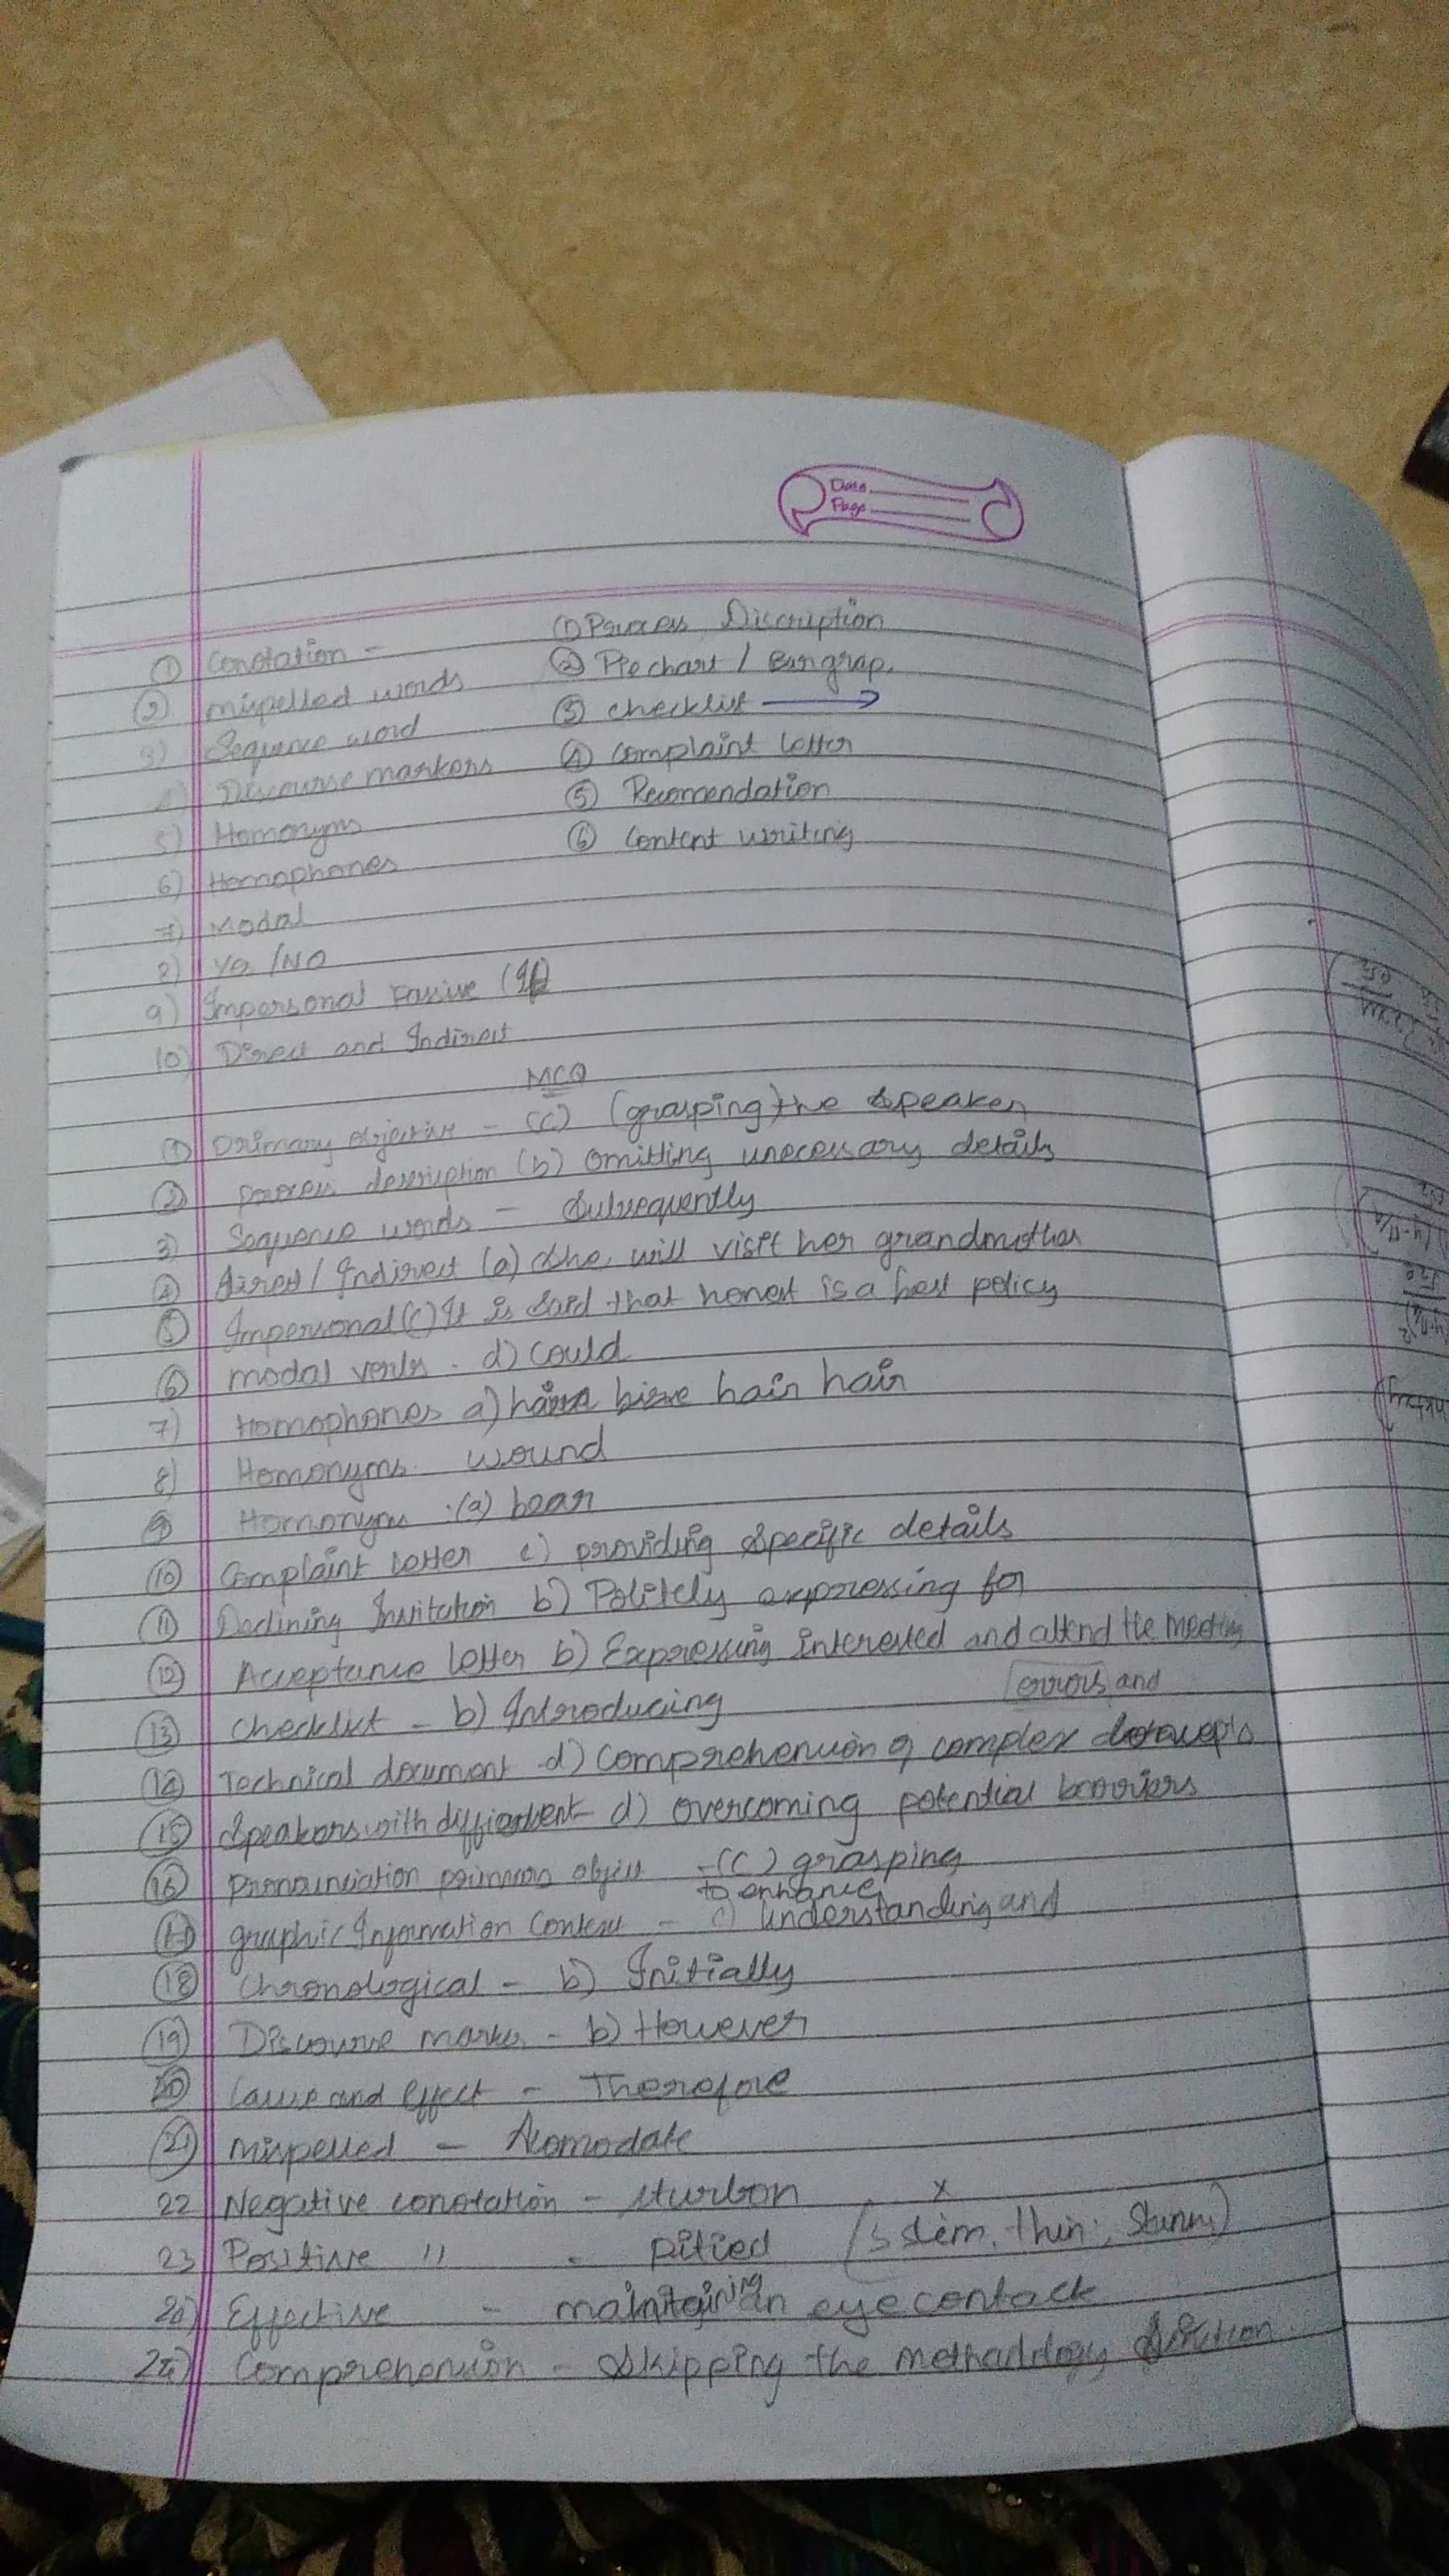 Date
Page
① Conotation -
② mispelled words
3) Sequence word
4) Discourse markers
5) Homonyms
6) Homophones
7) Modal
8) Yes /NO
9) Impersonal Passive (It)
10) Direct and Indirect
① Process Discription
② Pie chart / Bar grap.
③ Checklist →
④ Complaint letter
⑤ Recomendation
⑥ Content writing
MCQ
① Primary objective - (c) (grasping) the speaker
② process description (b) omitting unecessary details
3) Sequence words - Subsequently
④ direct / Indirect (a) She, will visit her grandmother
⑤ Impersonal (c) It is Said that honest is a best policy
⑥ modal verbs. d) Could
7) Homophones a) hair hair
8) Homonyms. wound
9) Homonyms :(a) bear
⑩ Complaint letter c) providing specific details
⑪ Declining Invitation b) Politely expressing for
⑫ Acceptance letter b) Expressing interested and attend the meeting
⑬ Checklist - b) Introducing errors and
⑭ Technical document - d) Comprehension of complex
⑮ Speakers with - d) overcoming potential barriers
⑯ Pronunciation object - (c) grasping
⑰ graphic Information Context - c) to enhance understanding and
⑱ Chronological - b) Initially
⑲ Discourse marker - b) However
⑳ Cause and effect - Therefore
㉑ Mispelled - Acomodate
22 Negative conotation - sturbon
23 Positive " - Pitied (slim, thin,
24) Effective - maintaining an eye contact
25) Comprehension - Skipping the methodology